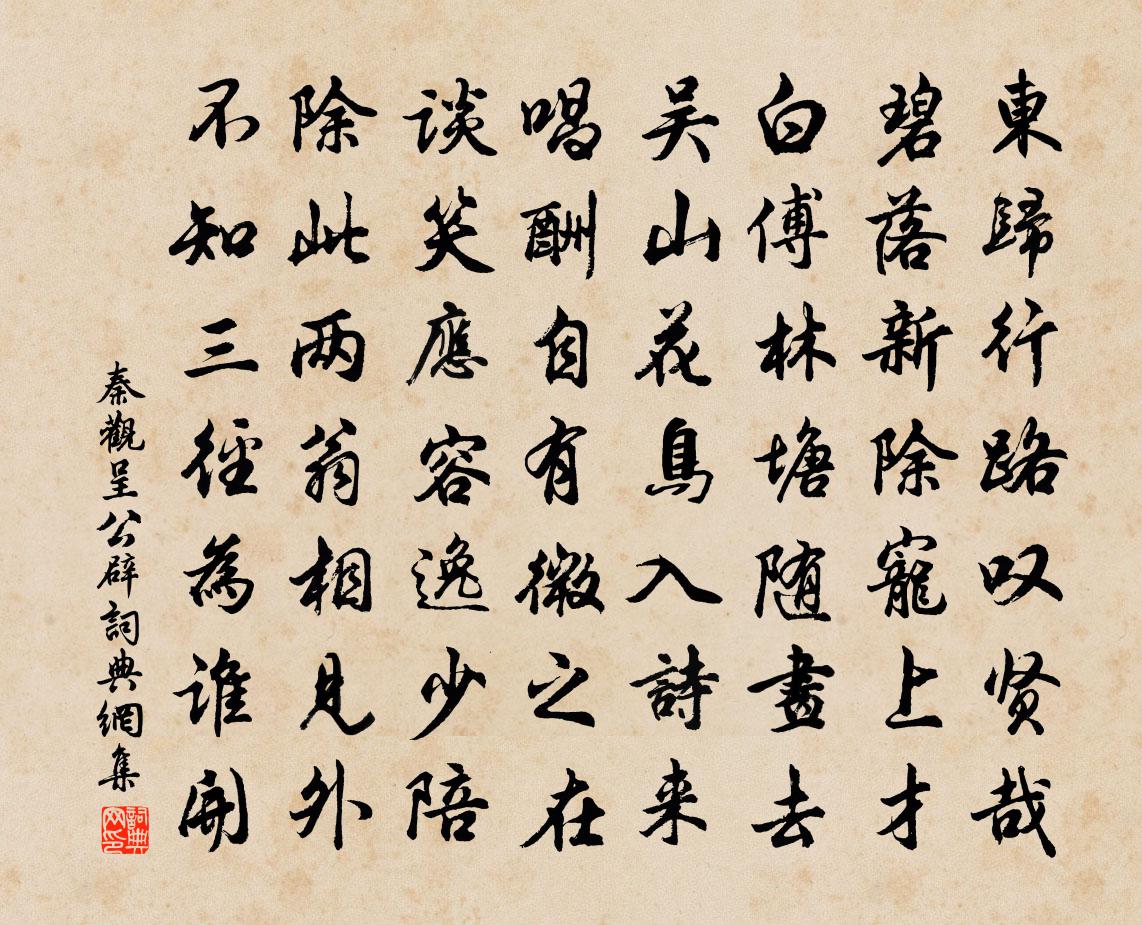 東歸行路叹贤哉
碧落新除寵上才
白傅林塘随畫去
吴山花鳥入詩来
唱酬自有微之在
談笑應容逸少陪
除此两翁相見外
不知三徑為谁開
秦觀呈公辟詞典網集
詞典网印